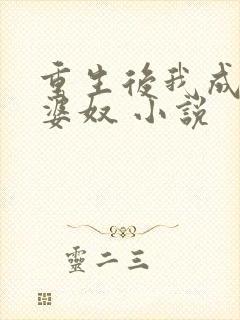 重生後我成
婆奴 小説
靈二三